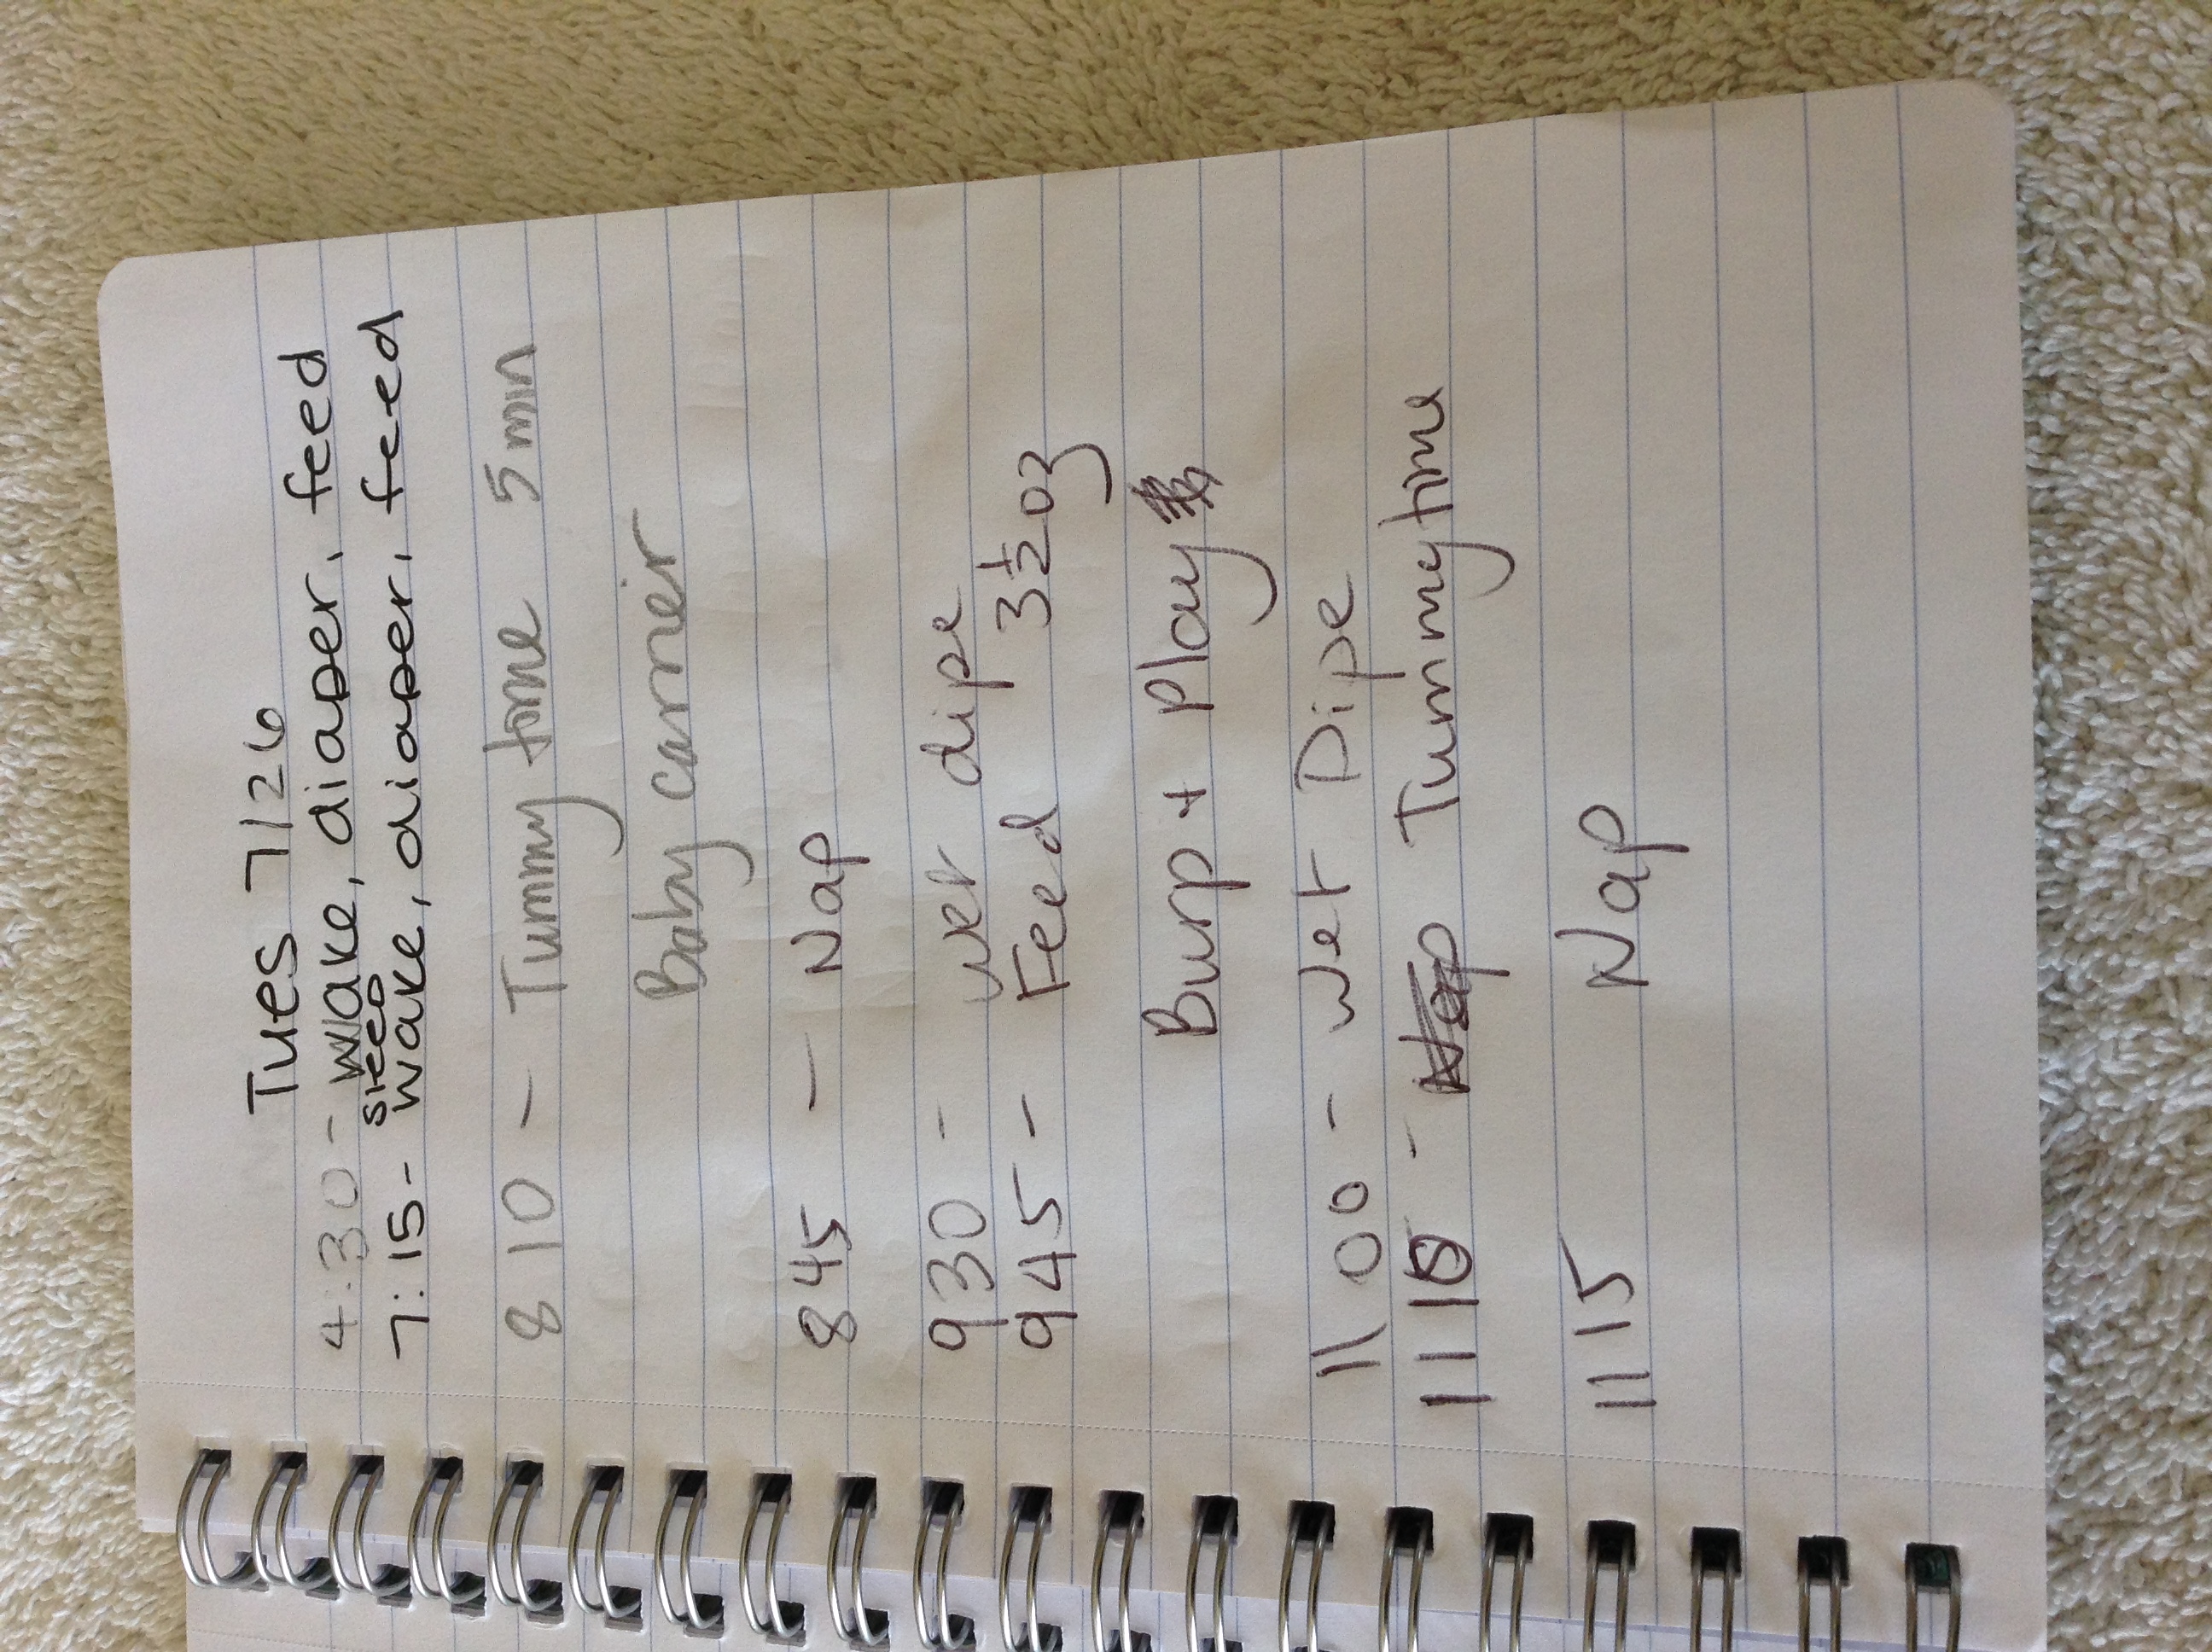 Tues 7/26
4:30 - wake, diaper, feed
sleep
7:15 - wake, diaper, feed
8 10 - Tummy time 5 min
Baby carrier
8 45 - Nap
9 30 - wet dipe
9 45 - Feed 3 1/2 oz
Burp + Play
11 00 - wet Dipe
11 10 - Nap Tummytime
11 15 Nap